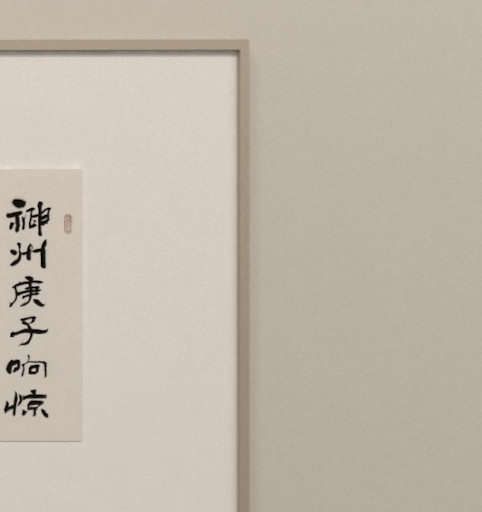 神州庚子响惊